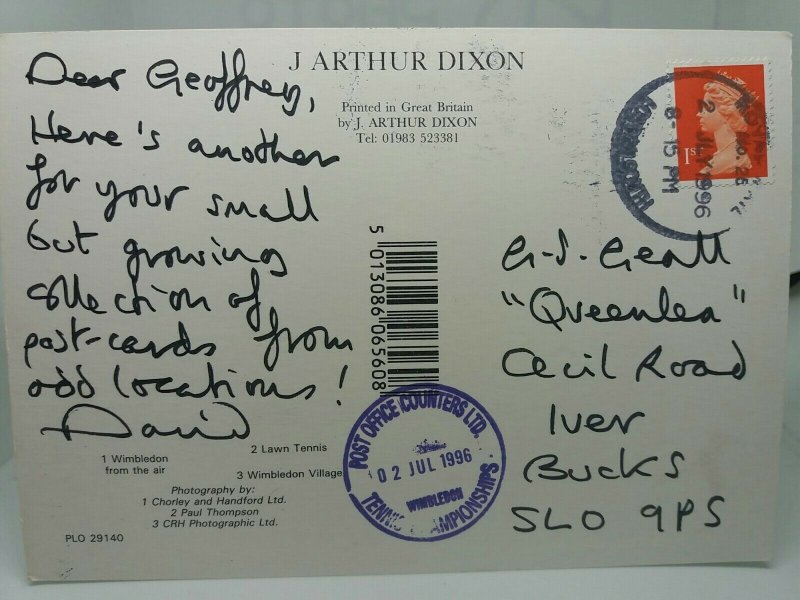 J ARTHUR DIXON
Printed in Great Britain
by J. ARTHUR DIXON
Tel: 01983 523381
Dear Geoffrey,
Here's another
for your small
but growing
collection of
post-cards from
odd locations!
David
1 Wimbledon
from the air
2 Lawn Tennis
3 Wimbledon Village
Photography by:
1 Chorley and Handford Ltd.
2 Paul Thompson
3 CRH Photographic Ltd.
PLO 29140
5 013086 065608
POST OFFICE COUNTERS LTD.
02 JUL 1996
WIMBLEDON
TENNIS CHAMPIONSHIPS
1st
2 JLY 1996
8-15 PM
G.J. Geall
"Queenlea"
Cecil Road
Iver
Bucks
SL0 9PS